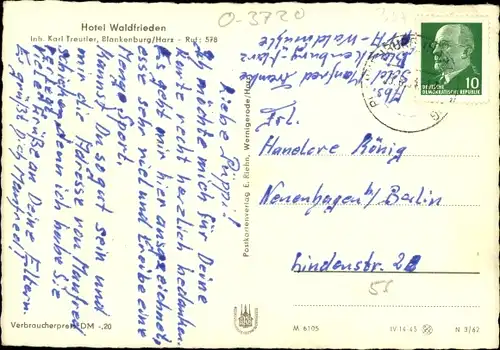 O-3720
Hotel Waldfrieden
Inh. Karl Treutler, Blankenburg/Harz - Ruf: 578
Liebe Püppi!
Ich möchte mich für Deine
Karte recht herzlich bedanken.
Es geht mir hier ausgezeichnet,
esse sehr viel und treibe eine
Menge Sport.
Kannst Du so gut sein und
mir die Adresse von Manfred
schicken, denn ich habe sie
Viele Grüße an Deine Eltern.
Es grüßt Dich Manfred!
Abs. Manfred
Blankenburg-Harz
PHV-Waldmühle
Frl.
Hanelore König
Neuenhagen b/Berlin
Lindenstr. 28
55
10
DEUTSCHE
DEMOKRATISCHE REPUBLIK
Postkartenverlag E. Riehn, Wernigerode/Harz
Verbraucherpreis DM -,20
M 6105
IV-14-45
N 3/62